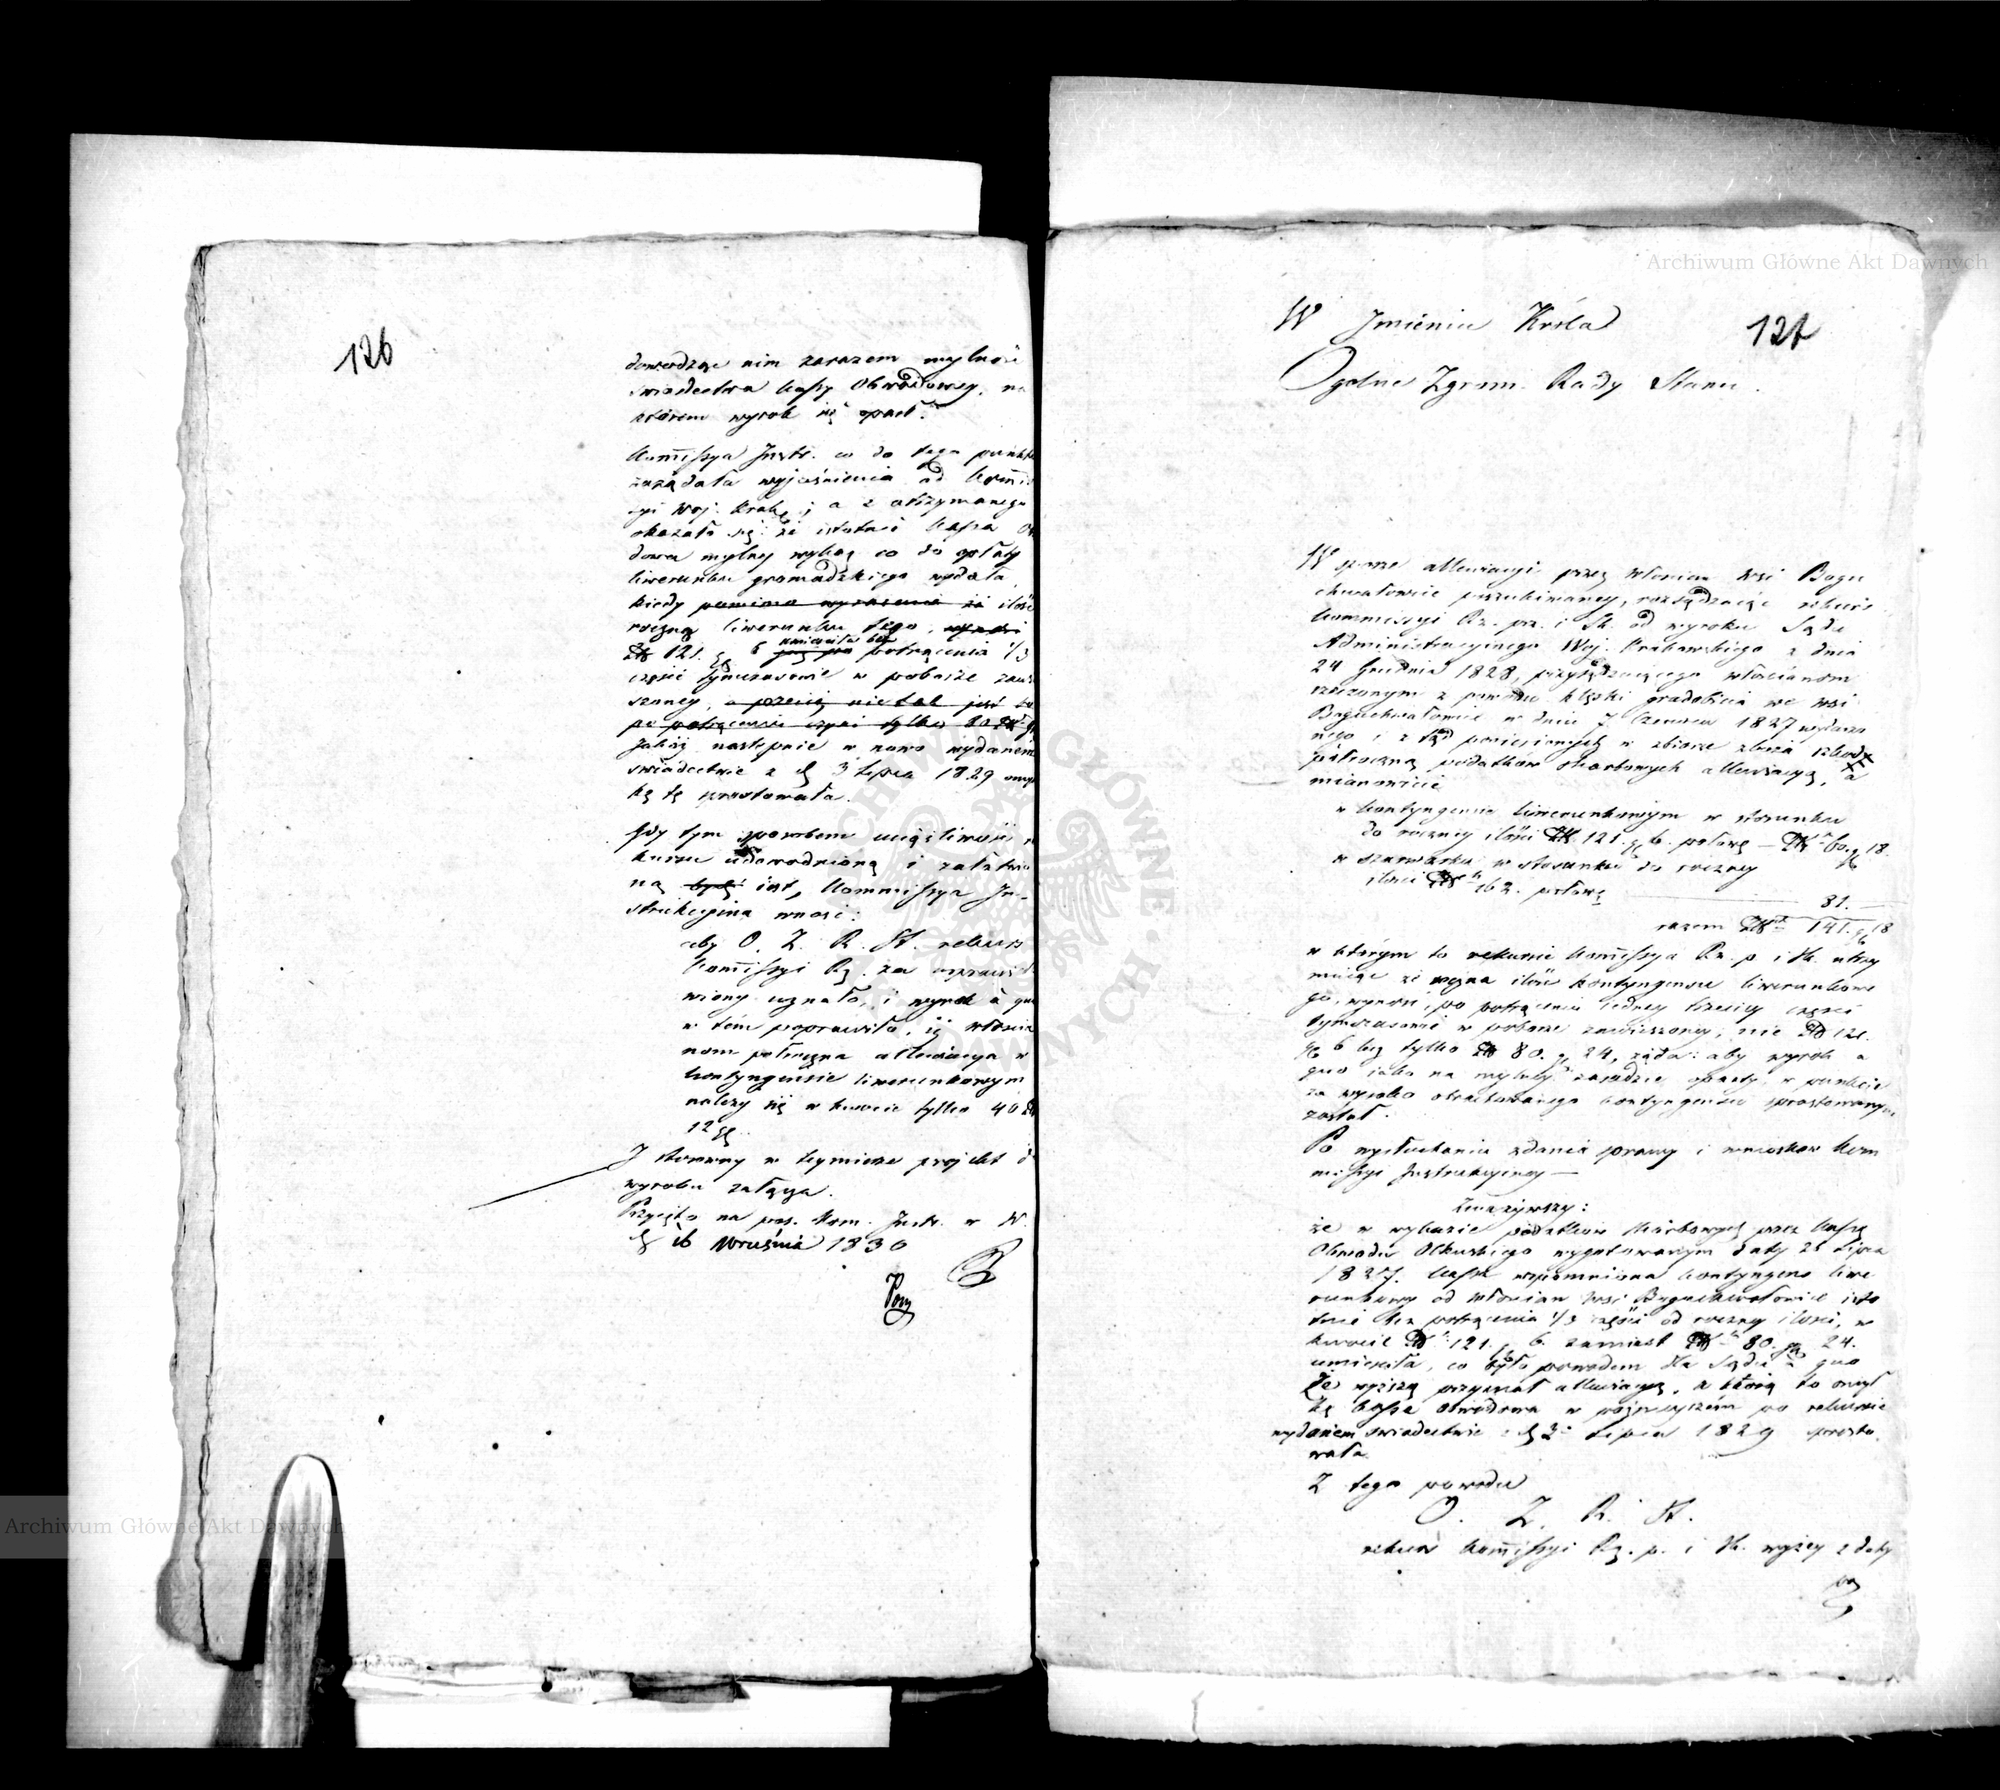 126
dowodząc nim zarazem mylność
świadectwa Kassy Obwodowey, na
którem wyrok się oparł.
Kom̄issya Instr. co do tego punktu
zażądała wyjaśnienia od Kom̄is
syi Woj. Krak; a z otrzymanego
okazało się: że istotnie Kassa Ob
dowa mylny wykaz co do opłaty
liwerunku gromadzkiego wydała
kiedy pomimo wyrażenia że ilość
roczną liwerunku tego, wynosi
umieściła bez
Złł 121. g 6 potrącenia 1/3
części tymczasowie w poborze zawie
szoney, a przecię nie tak jest bo
po potrąceniu czyni tylko 80 Złł g
Jakoż następnie w nowo wydanem
świadectwie z d 3 Lipca 1829 omył
kę tę prostowała.
Gdy tym sposobem uciążliwość re
kursu udowodnioną i załatwio
ną być jest, Kommissya In-
strukcyina wnosi:
aby O. Z. R. St. rekurs
Kom̄issyi Rz. za usprawiedli
wiony uznało, i wyrok à quo
w tém poprawiła, iż włościa
nom półroczna allewiacya w
kontyngensie liwerunkowym
należy się w kwocie tylko 40 Zł
12 g.
I stosowny w teymierze projekt do
wyroku załącza.
Przyjęto na pos. Kom. Instr. w W.
d 16 Września 1830
Archiwum Główne Akt Dawnych
127
W Imieniu Króla
Ogolne Zgrom. Rady Stanu.
W sporze allewiacyi przez Włościan Wsi Bogu
chwałowic poszukiwaney, rozsądzaiąc rekurs
Kommissyi Rz. prz. i Sk. od wyroku Sądu
Administracyinego Woj. Krakowskiego z dnia
24 Grudnia 1828, przysądzaiącego włościanom
rzeczonym z powodu klęski gradobicia we wsi
Boguchwałowic w dniu 7 Czerwca 1827 wydarzo
nego i z tąd poniesionych w zbiorze zboża szkod
półroczną podatków skarbowych allewiacyą, a
mianowicie
w kontyngensie liwerunkowym w stosunku
do roczney ilości Złł 121. g 6. połowę — Złł 60. g 18.
w szarwarku w stosunku do roczney
ilości Złł 162. połowę
81. —
razem Złł 141. g 18
w którym to rekursie Kom̄issya Rz. p i Sk. utrzy
muiąc że roczna ilość kontyngensu liwerunkowe
go, wynosi po potrąceniu iedney trzeciey części
tymczasowie w poborze zawieszoney, nie Zł 121.
g 6 lecz tylko Zł 80. g 24, żąda: aby wyrok a
quo iako na mylney zasadzie oparty, w punkcie
za wysoko obrachowanego kontyngensu sprostowanym
został.
Po wysłuchaniu zdania sprawy i wniosków Kom
missyi Instrukcyiney —
Zważywszy:
że w wykazie podatków skarbowych przez Kassę
Obwodu Olkuskiego wygotowanym daty 28 Lipca
1827. Kassa wspomniona kontyngens liwe
runkowy od Włościan Wsi Boguchwałowic isto
tnie bez potrącenia 1/3 części od roczney ilości, w
kwocie Złł 121. g 6. zamiast Złł 80. g 24.
umieściła, co było powodem dla Sądu a quo
że wyższą przyznał allewiacyą, a którą to omył
kę Kassa obwodowa w późnieyszém po rekursie
wydanem świadectwie z d 3 Lipca 1829 prosto
wała.
Z tego powodu
O. Z. R. St.
rekurs Kom̄issyi Rz. p. i Sk. wyżey z daty
Archiwum Główne Akt Dawnych